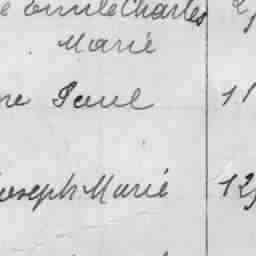 e Emile Charles 2
Marie
ne Paul 11
Joseph Marie 12